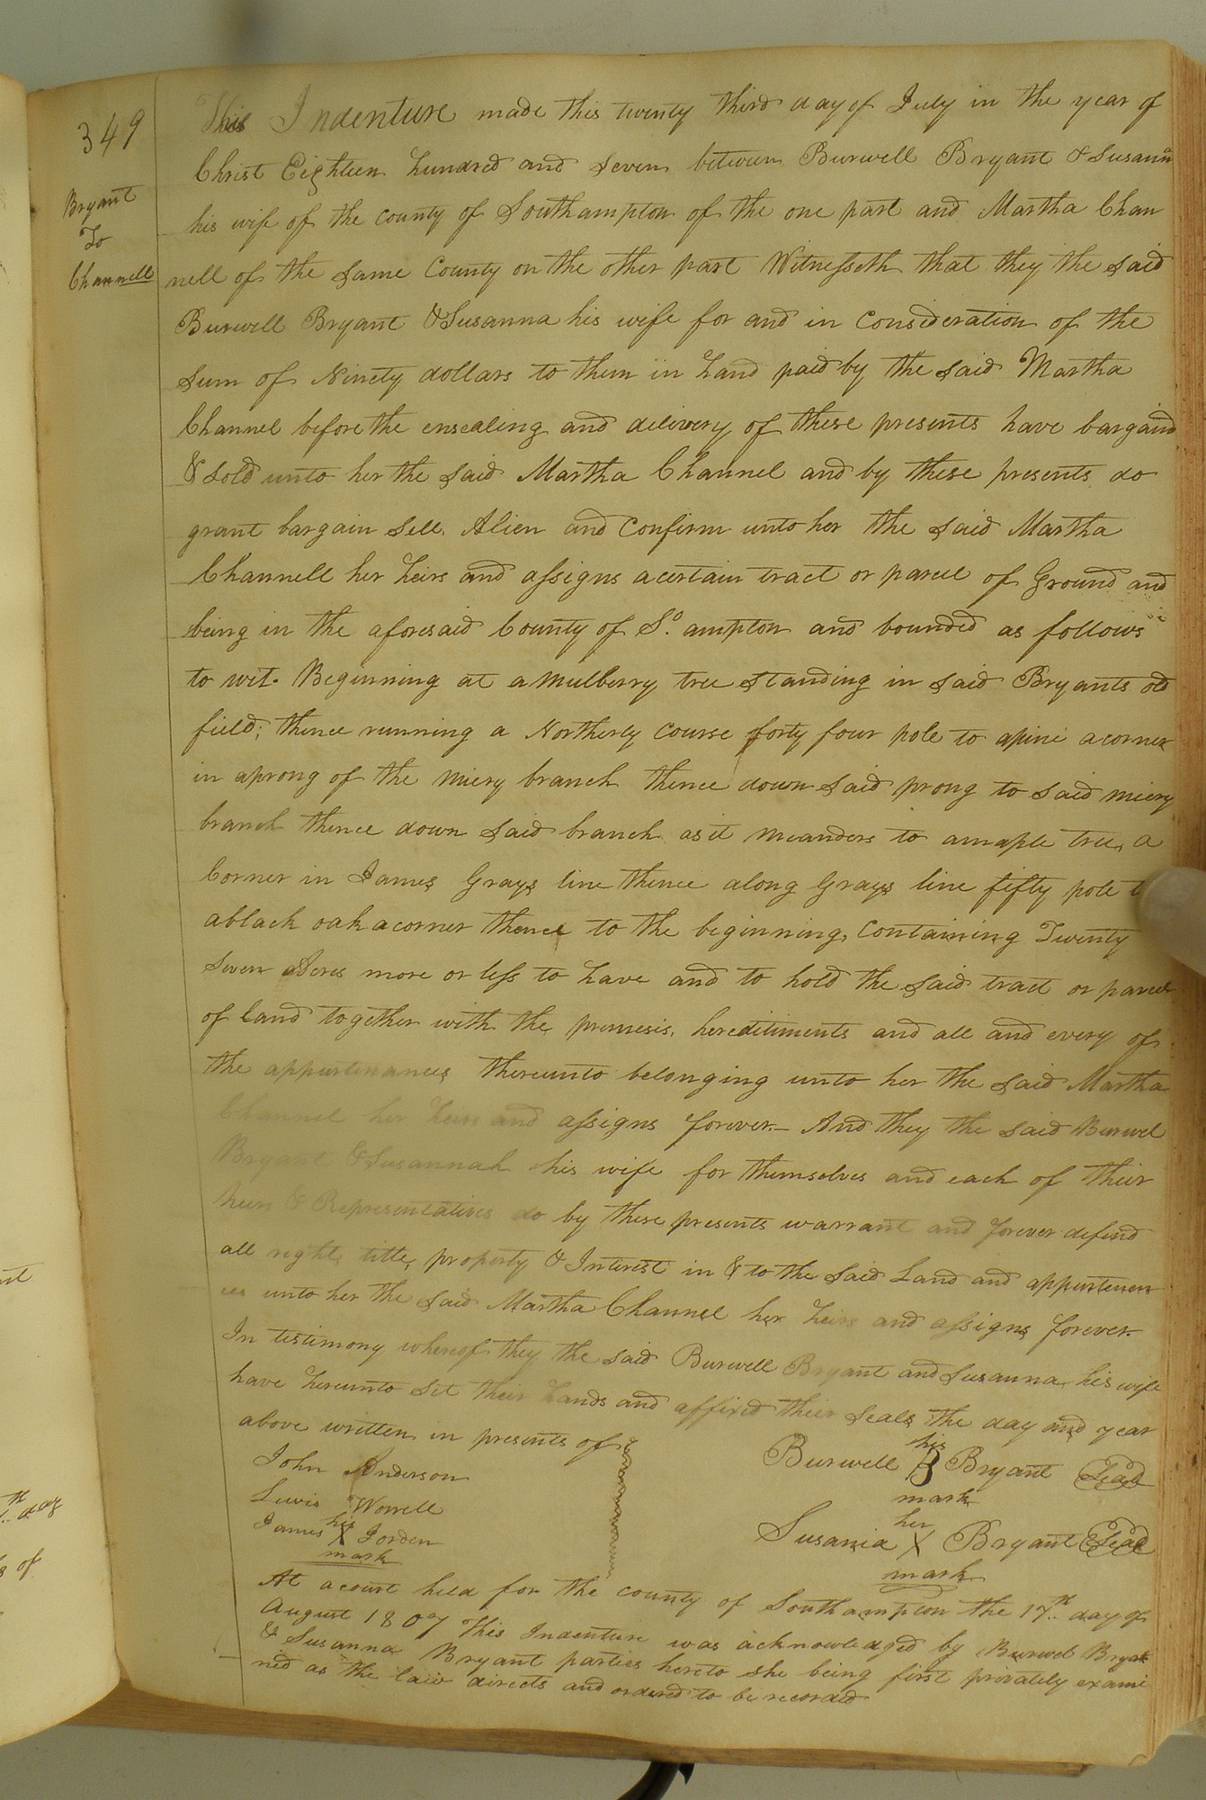 349
Bryant
To
Channell
This Indenture made this twenty third day of July in the year of
Christ Eighteen hundred and seven between Burwell Bryant & Susanna
his wife of the county of Southampton of the one part and Martha Chan
nell of the same County on the other part Witnesseth that they the said
Burwell Bryant & Susanna his wife for and in consideration of the
sum of Ninety dollars to them in hand paid by the said Martha
Channel before the ensealing and delivery of these presents have bargaind
& sold unto her the said Martha Channel and by these presents do
grant bargain sell, Alien and confirm unto her the said Martha
Channell her heirs and assigns a certain tract or parcel of Ground and
being in the aforesaid County of So. ampton and bounded as follows
to wit. Beginning at a mulberry tree standing in said Bryants old
field; thence running a Northerly course forty four pole to a pine a corner
in a prong of the miery branch thence down said prong to said miery
branch thence down said branch as it meanders to a maple tree, a
Corner in James Grays line thence along Grays line fifty pole
a black oak a corner thence to the beginning, containing Twenty
seven Acres more or less to have and to hold the said tract or parcel
of land together with the premesis, hereditiments and all and every of
the appurtenances thereunto belonging unto her the said Martha
Channel her heirs and assigns forever.— And they the said Burwel
Bryant & Susannah his wife for themselves and each of their
heirs & Representatives do by these presents warrant and forever defend
all right, title, property & Interest in & to the said Land and appurtenan
ces unto her the said Martha Channel her heirs and assigns forever.
In testimony whereof they the said Burwell Bryant and Susanna his wife
have hereunto set their hands and affixed their seals the day and year
above written in presents of
John Anderson
Lewis Worrell
his
James X Jorden
mark
his
Burwell B Bryant Seal
mark
her
Susania X Bryant Seal
mark
At a court held for the county of Southampton the 17th day of
August 1807 This Indenture was acknowledged by Burwel Bryant
& Susanna Bryant parties hereto she being first privately exami
ned as the law directs and ordered to be recorded
th day
of